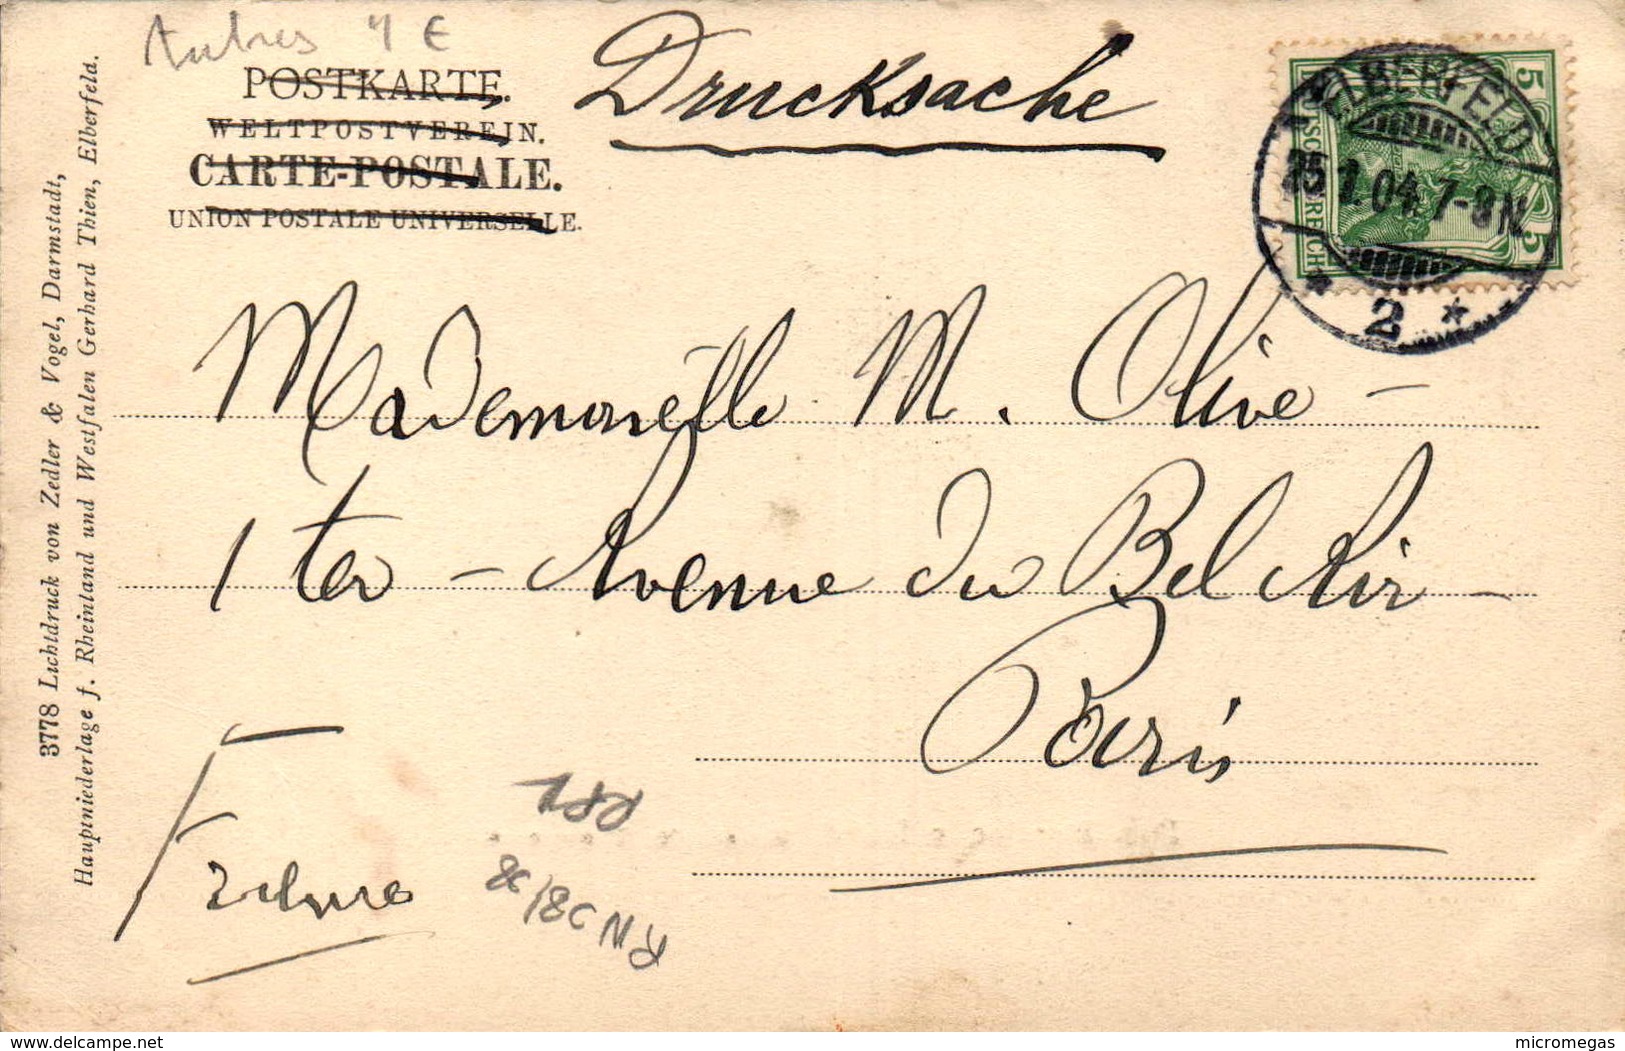 Autres 4 €
POSTKARTE.
WELTPOSTVEREIN.
CARTE-POSTALE.
UNION POSTALE UNIVERSELLE.
Drucksache
5 5
ELBERFELD
25.1.04.7-8N.
2 *
Mademoiselle M. Olive -
1 ter - Avenue du Bel Air -
Paris
3778 Lichtdruck von Zedler & Vogel, Darmstadt,
Hauptniederlage f. Rheinland und Westfalen Gerhard Thien, Elberfeld.
delcampe.net
micromegas